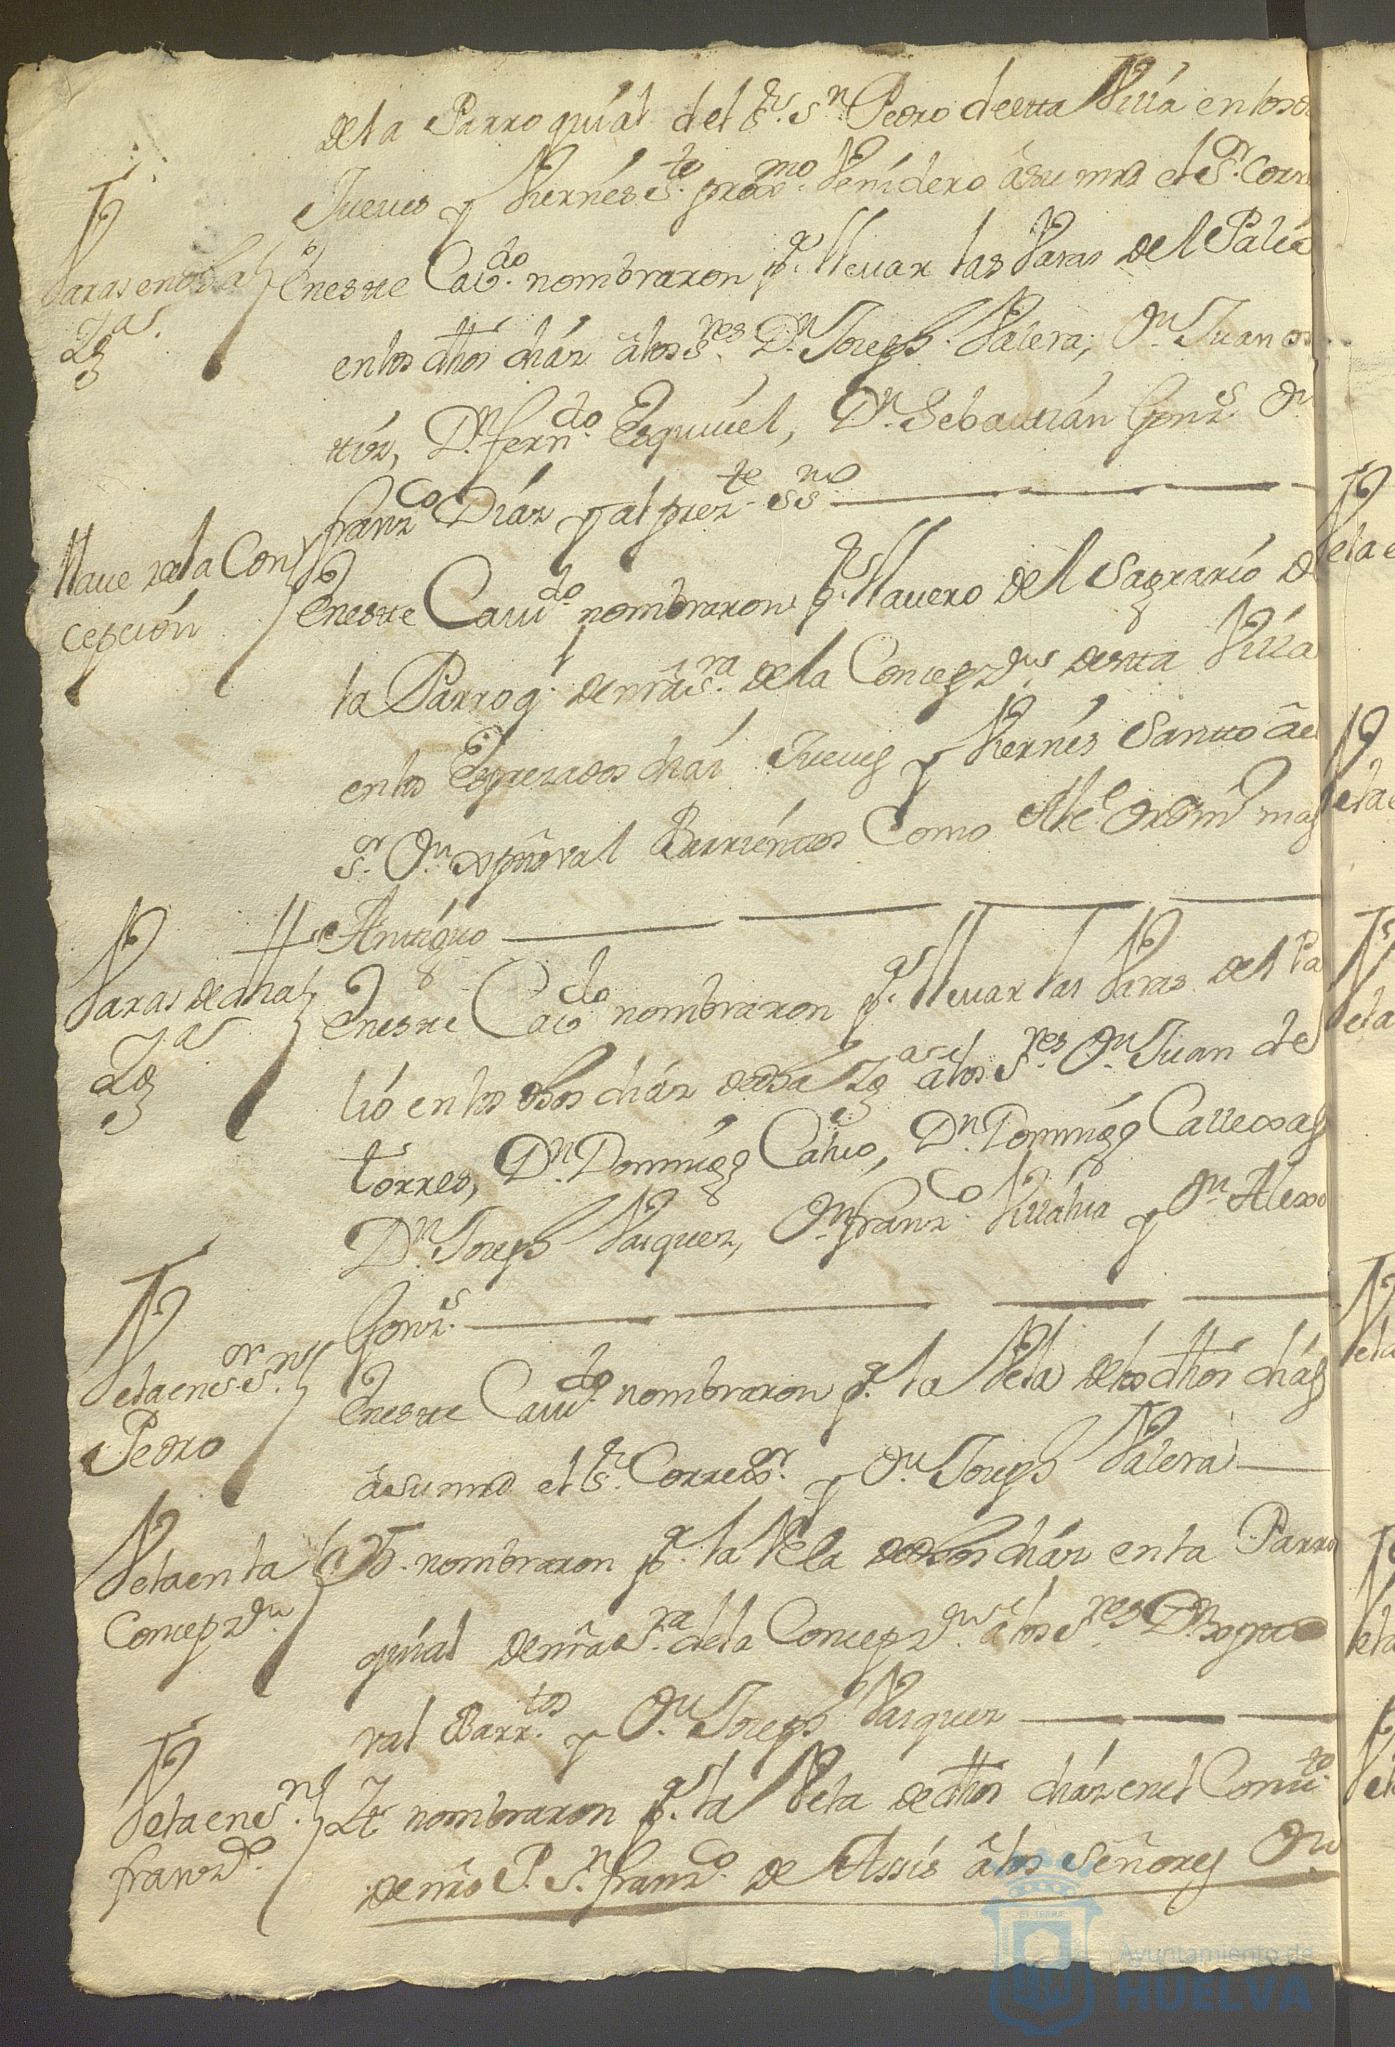 de la Parroquial del Sr. Sn. Pedro de esta Villa en los
Jueves y Viernes Sto. proxmo. Venidero â su mrd el Sr. Corre
Varas en dha
Yga.
En este Cavdo. nombraron pa. llevar las Varas del Palio
en los dhos dias â los Sres. Dn. Joseph Valera, Dn. Juan
tiz, Dn. Ferndo. Esquivel, Dn. Sebastian Gonzs. Dn
Franco. Diaz y al preste. ssno
Llave de la Con
cepción
En este Cavdo. nombraron pa. llavero del Sagrario de
la Parroq. de nra Sra. de la Concepzn. desta Villa
en los Expresados dias Jueves y Viernes Santto âl
Sr. Dn. Xptoval Barrientos Como Alce Ordino mas
Antiguo
Varas de dha
Yga.
En este Cavdo nombraron pa. llevar las Varas del Pa
lio en los dhos dias de dha Yga â los Sres. Dn. Juan de
torres, Dn. Domingo Calvo, Dn. Domingo Callexas
Dn. Joseph Vasquez, Dn. Franzco. Villalva y Dn. Alexo
Gonzs.
Vela en el Sor. Sn.
Pedro
En este Cavdo. nombraron pa. la Vela de los dhos dias
â su mrd el Sr. Corregor. y Dn. Joseph Valera
Vela en la
Concepzn.
Yt. nombraron pa. la Vela de dhos dias en la Parro
quial de nra Sra. de la Concepzn. â los Sres. Dn. Xpto
val Barrtos. y Dn. Joseph Vasquez
Vela en Sn.
Franco.
Yt nombraron pa. la Vela de dhos dias en el Convto.
de nro P. Sn. Franco. de Assis â los Señores Dn
Ayuntamiento de
HUELVA